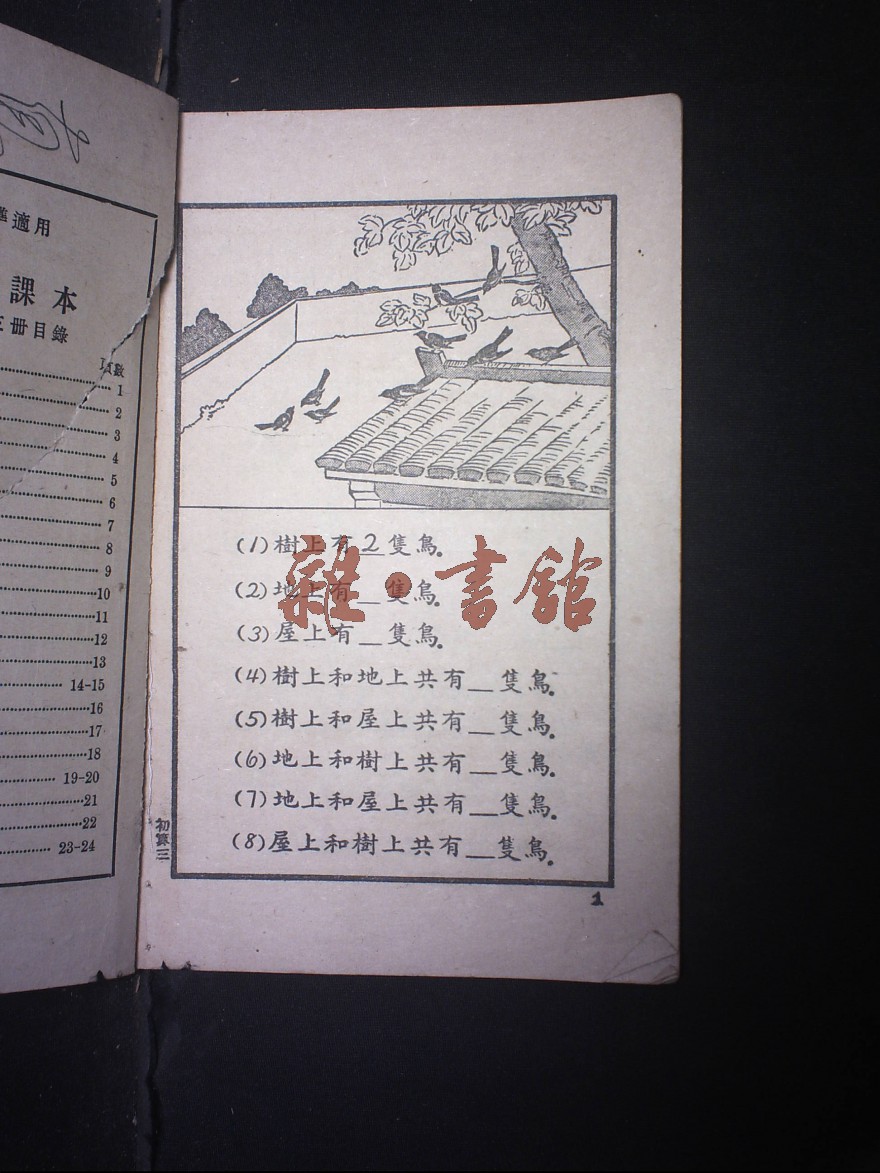 適用
課本
三冊目錄
頁數
1
2
3
4
5
6
7
8
9
10
11
12
13
14-15
16
17
18
19-20
21
22
23-24
(1)樹上有2隻鳥.
(2)地上有__隻鳥.
(3)屋上有__隻鳥.
(4)樹上和地上共有__隻鳥.
(5)樹上和屋上共有__隻鳥.
(6)地上和樹上共有__隻鳥.
(7)地上和屋上共有__隻鳥.
(8)屋上和樹上共有__隻鳥.
雜·書館
初算三
1